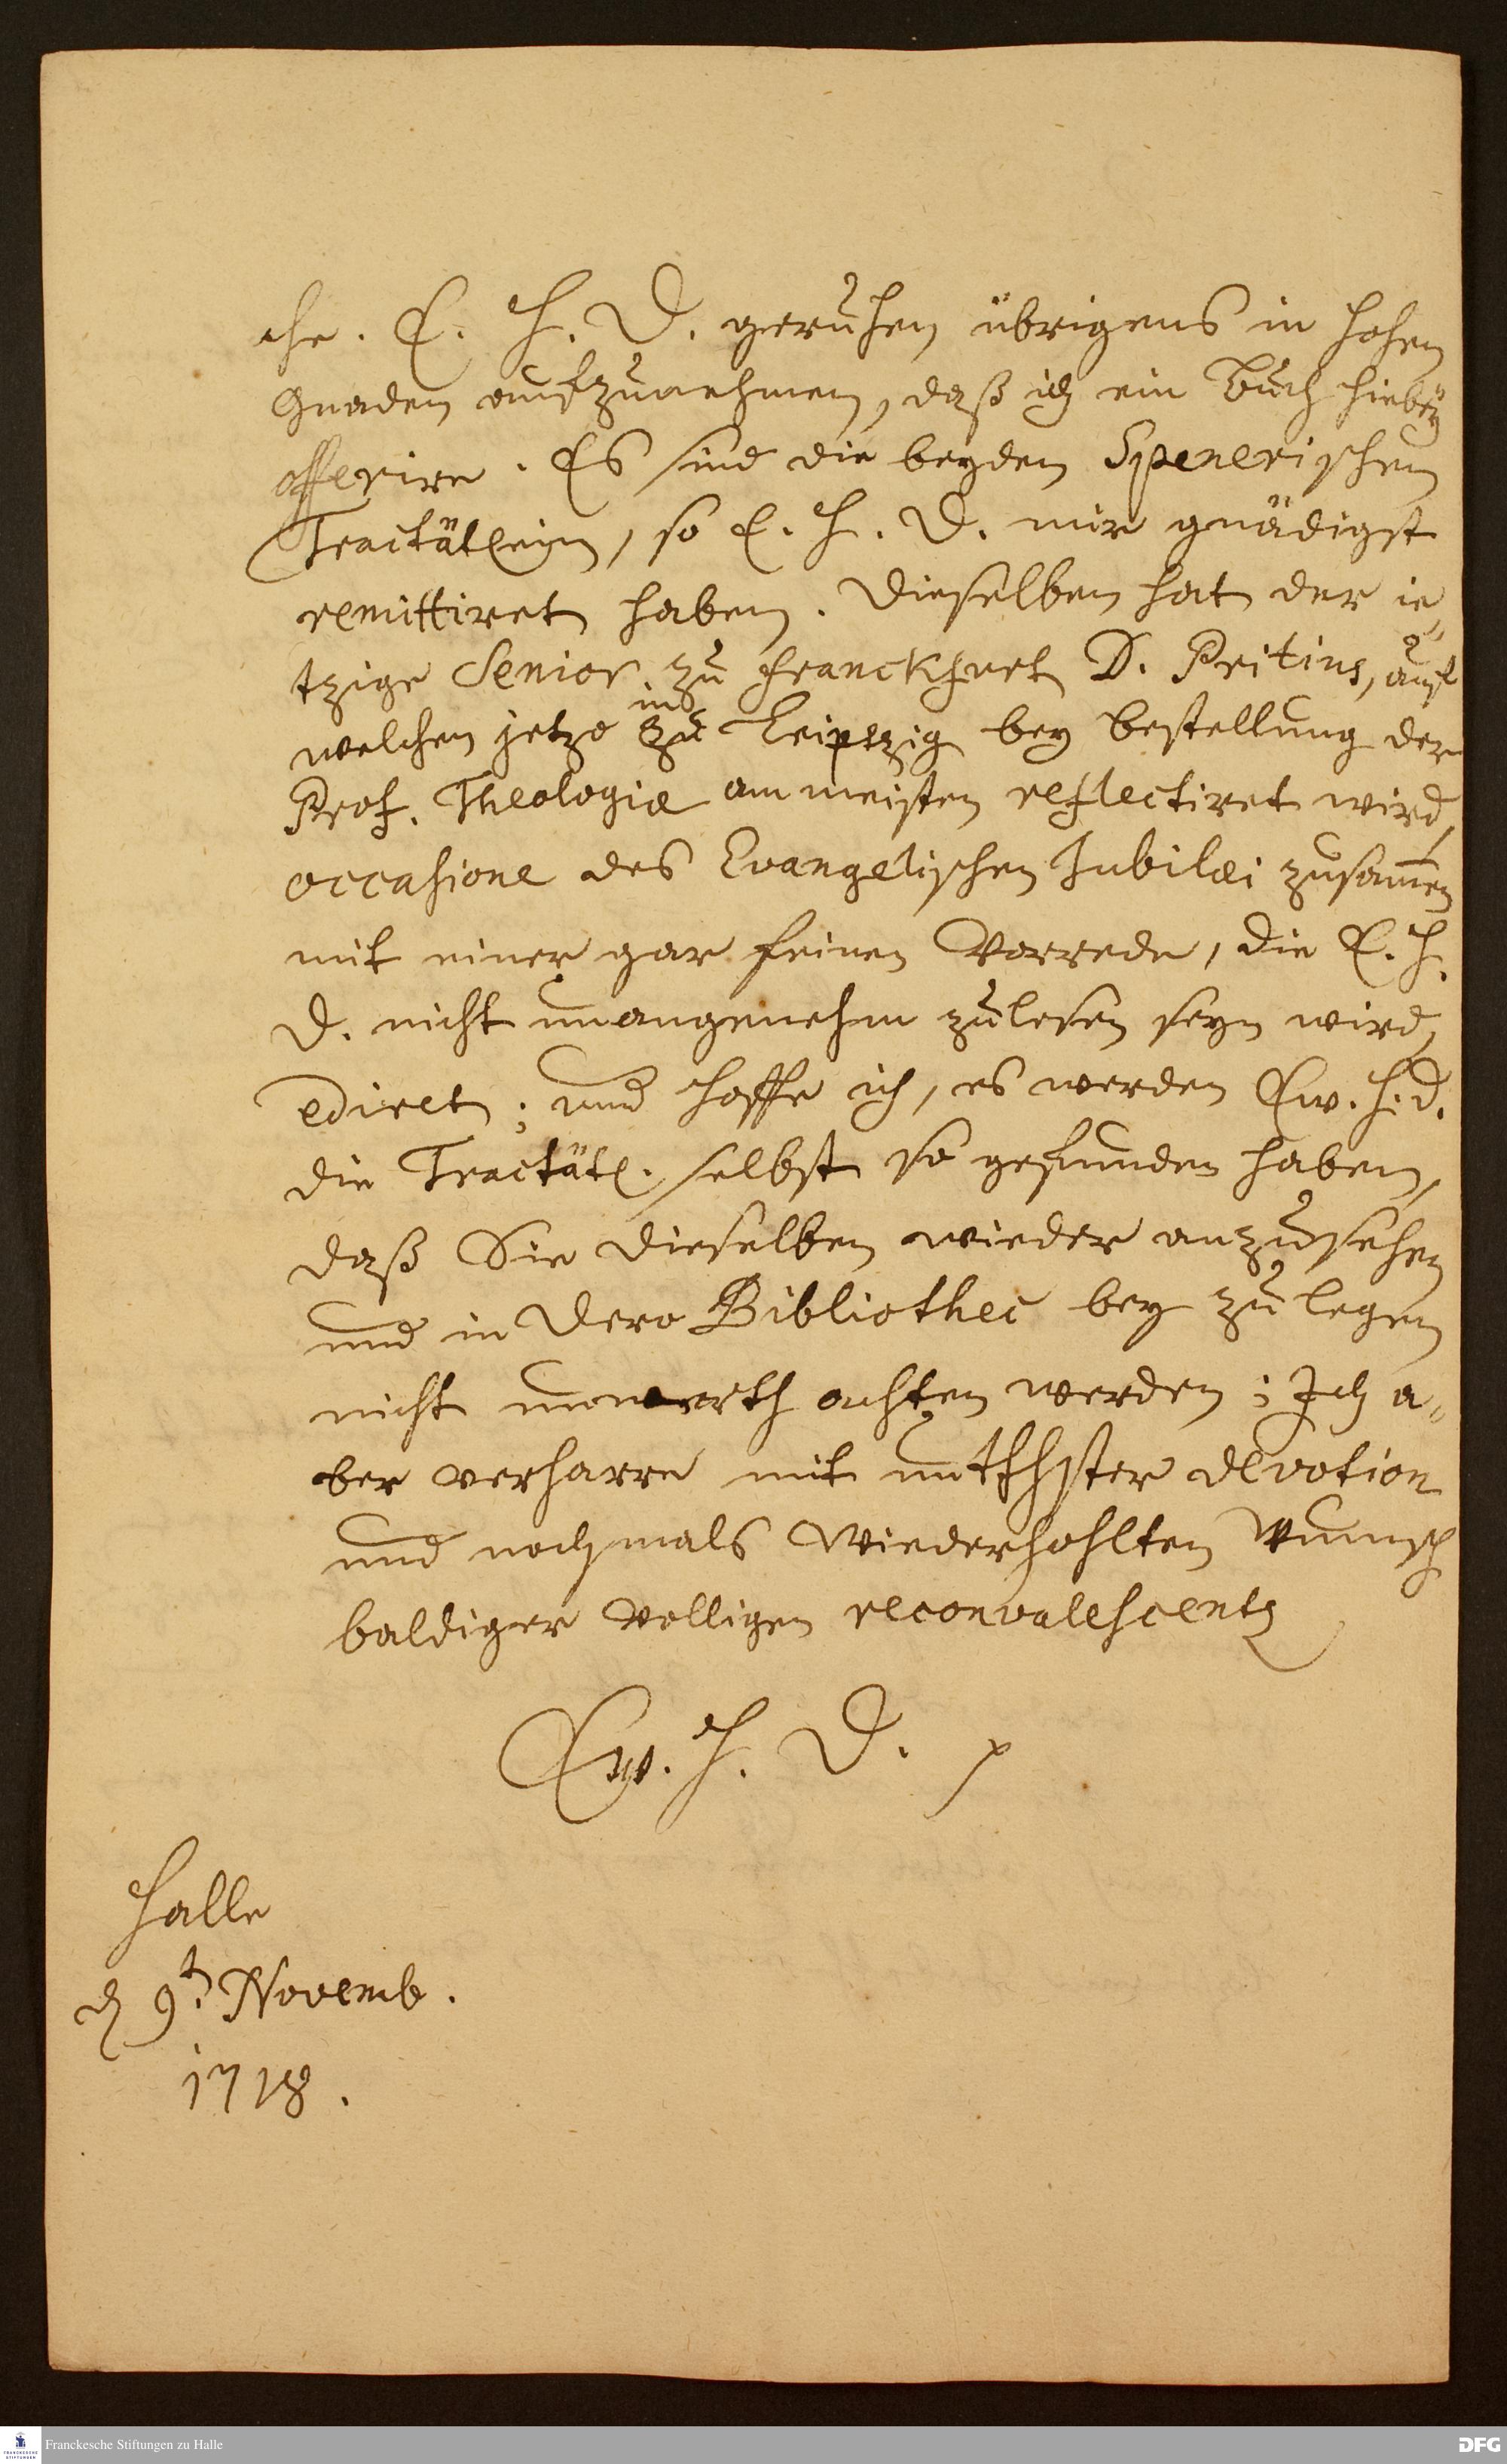 che. E. H. D. geruhen übrigens in hohen
Gnaden aufzunehmen, daß ich ein Buch hiebey
offerire. Es sind die beyden Spenerischen
Tractätlein, so E. H. D. mir gnädigst
remittiret haben. Dieselben hat der ie„
tzige Senior zu Franckfurt D. Pritius, auf
in
welchen jetzo zu Leipszig bey bestellung der
Prof. Theologiæ am meisten reflectiret wird,
occasione des Evangelischen Jubilæi zusam̅en
mit einer gar feinen Vorrede, die E. H.
D. nicht unangenehm zulesen seyn wird,
ediret; und hoffe ich, es werden Ew. H. D.
die Tractätl. selbst so gefunden haben,
daß Sie dieselben wieder anzusehen
und in Dero Bibliothec bey zu legen
nicht unwerth achten werden; Ich a„
ber verharre mit unthhster devotion
und nochmals wiederhohlten Wunsch
baldiger völligen reconvalescentz
Ew. H. D. p
Halle
d 9t. Novemb.
1718.
Franckesche Stiftungen zu Halle
FRANCKESCHE STIFTUNGEN
DFG